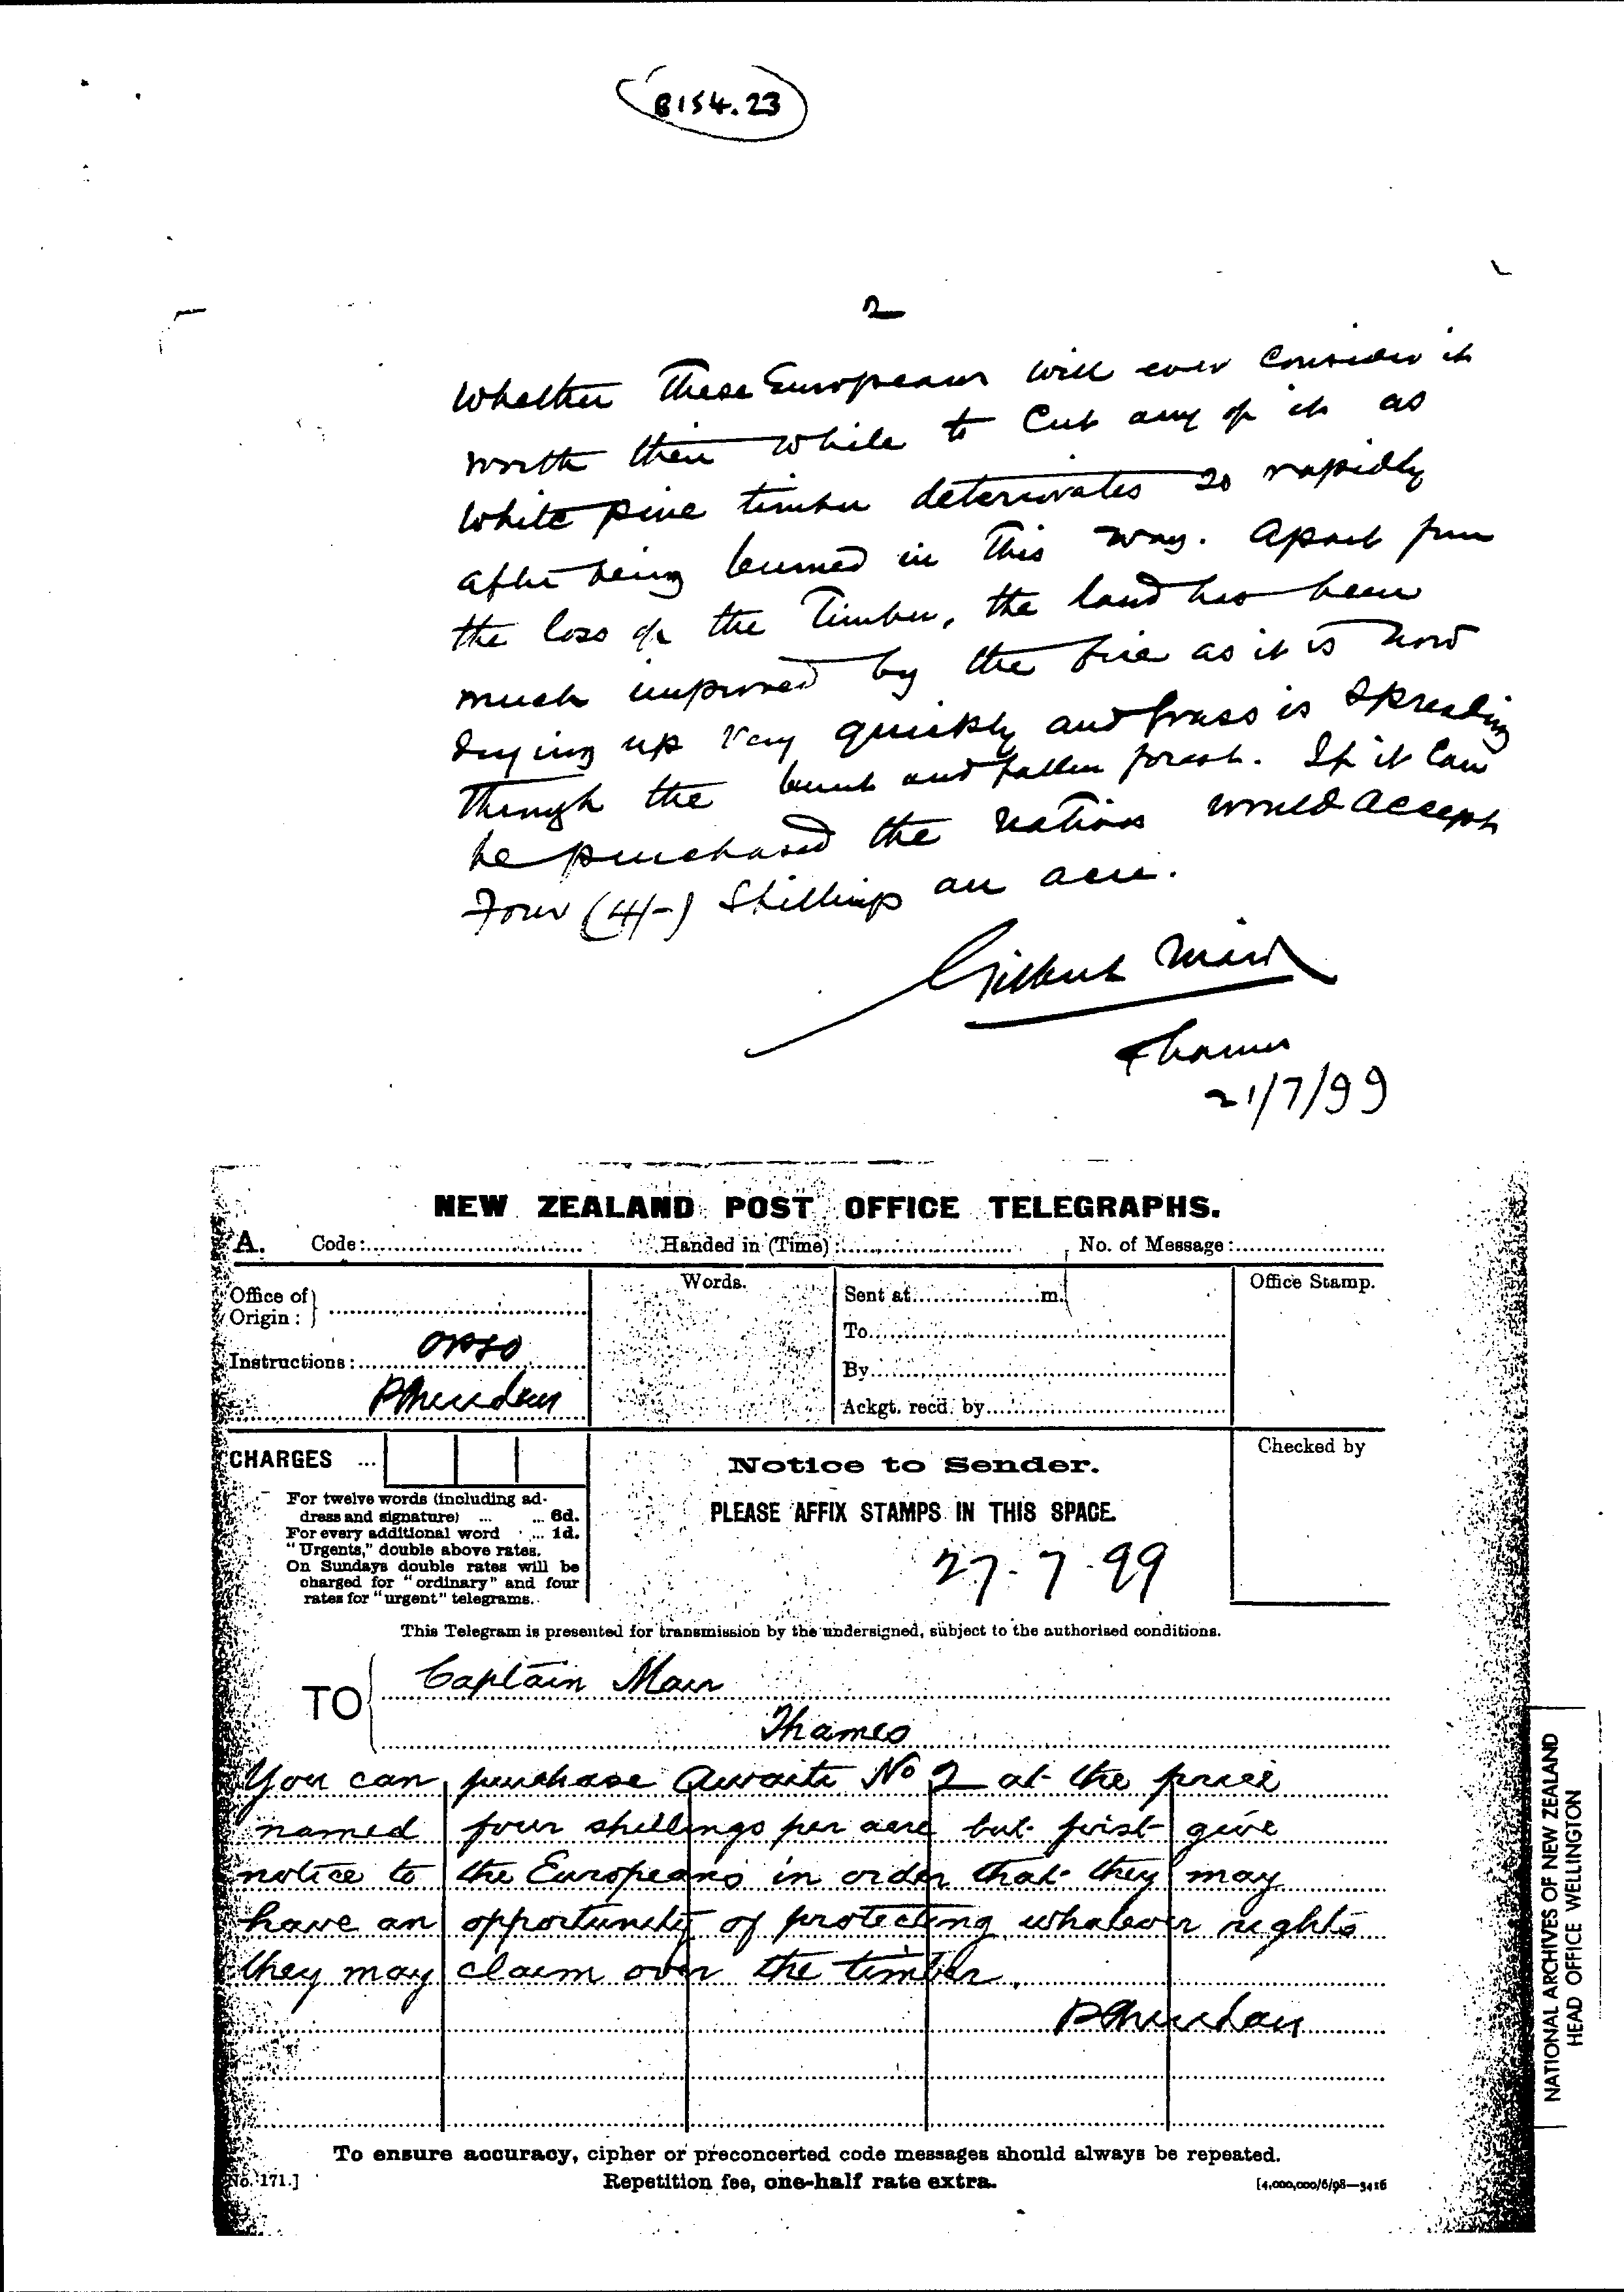 B154.23
2
Whether these Europeans will ever consider it
worth their while to cut any of it as
White pine timber deteriorates so rapidly
after being burned in this way. Apart from
the loss of the Timber, the land has been
much improved by the fire as it is now
drying up very quickly and grass is spreading
through the burnt and fallen forest. If it can
be purchased the natives would accept
Four (4/-) Shillings an acre.
Gilbert Mair
Thames
21/7/99
NEW ZEALAND POST OFFICE TELEGRAPHS.
A. Code: Handed in (Time): No. of Message:
Office of Origin:
Words.
Sent at m.
To
By
Ackgt. recd. by
Office Stamp.
Instructions: OPSO
P Sheridan
CHARGES ...
For twelve words (including ad-
dress and signature) ... ... 6d.
For every additional word ... 1d.
"Urgents," double above rates.
On Sundays double rates will be
charged for "ordinary" and four
rates for "urgent" telegrams.
Notice to Sender.
PLEASE AFFIX STAMPS IN THIS SPACE.
27.7.99
Checked by
This Telegram is presented for transmission by the undersigned, subject to the authorised conditions.
TO Captain Mair
Thames
You can purchase Awaiti No 2 at the price
named four shillings per acre but first give
notice to the Europeans in order that they may
have an opportunity of protecting whatever rights
they may claim over the timber.
P Sheridan
To ensure accuracy, cipher or preconcerted code messages should always be repeated.
Repetition fee, one-half rate extra.
No. 171.]
[4,000,000/6/98—3416
NATIONAL ARCHIVES OF NEW ZEALAND
HEAD OFFICE WELLINGTON